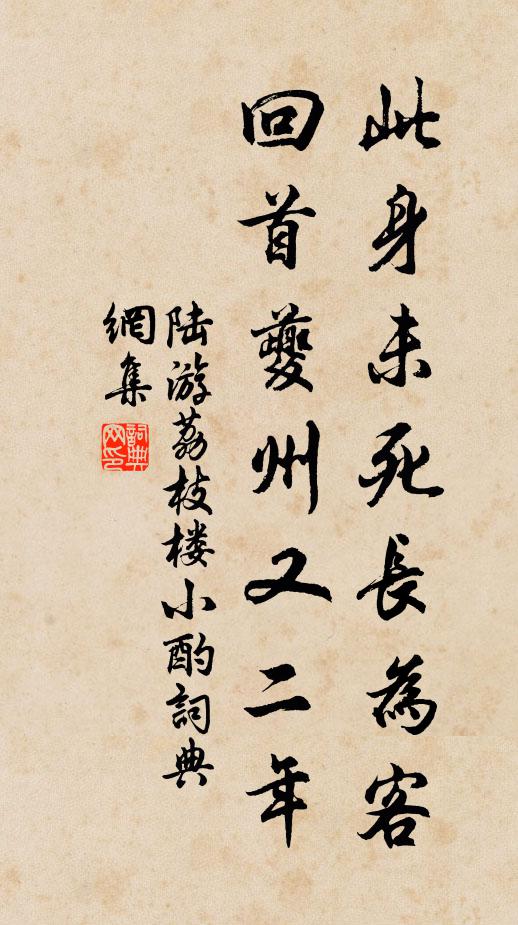 此身未死長為客
回首夔州又二年
陆游荔枝楼小酌詞典
網集
詞典
网印